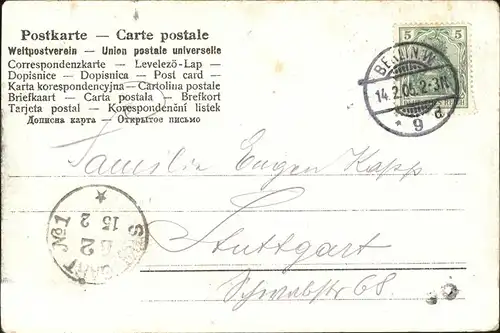 Postkarte — Carte postale
Weltpostverein — Union postale universelle
Correspondenzkarte — Levelezö-Lap —
Dopisnice — Dopisnica — Post card —
Karta korespondencyjna — Cartolina postale
Briefkaart — Carta postala — Brefkort
Tarjeta postal — Korespondenční listek
Дописна карта — Открытое письмо
5 5
BERLIN W
14.2.05. 2-3N.
* 9 d
Familie Eugen Kapp
Stuttgart
Schwabstr 68.
STUTTGART No 1
15 2